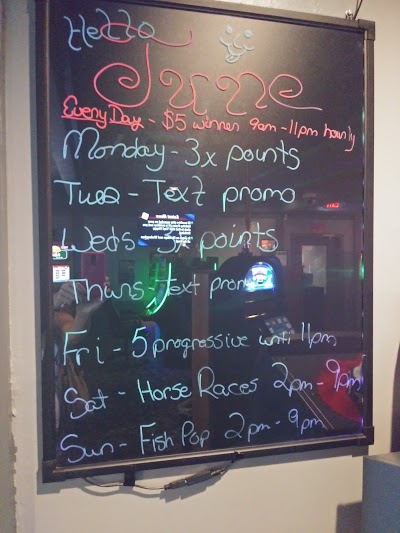 Hello
June
Every Day - $5 winner 9am - 11pm hourly
Monday - 3x points
Tues - Text promo
Weds - 3x points
Thurs - Text promo
Fri - 5 progressive until 11pm
Sat - Horse Races 2pm - 9pm
Sun - Fish Pop 2pm - 9pm